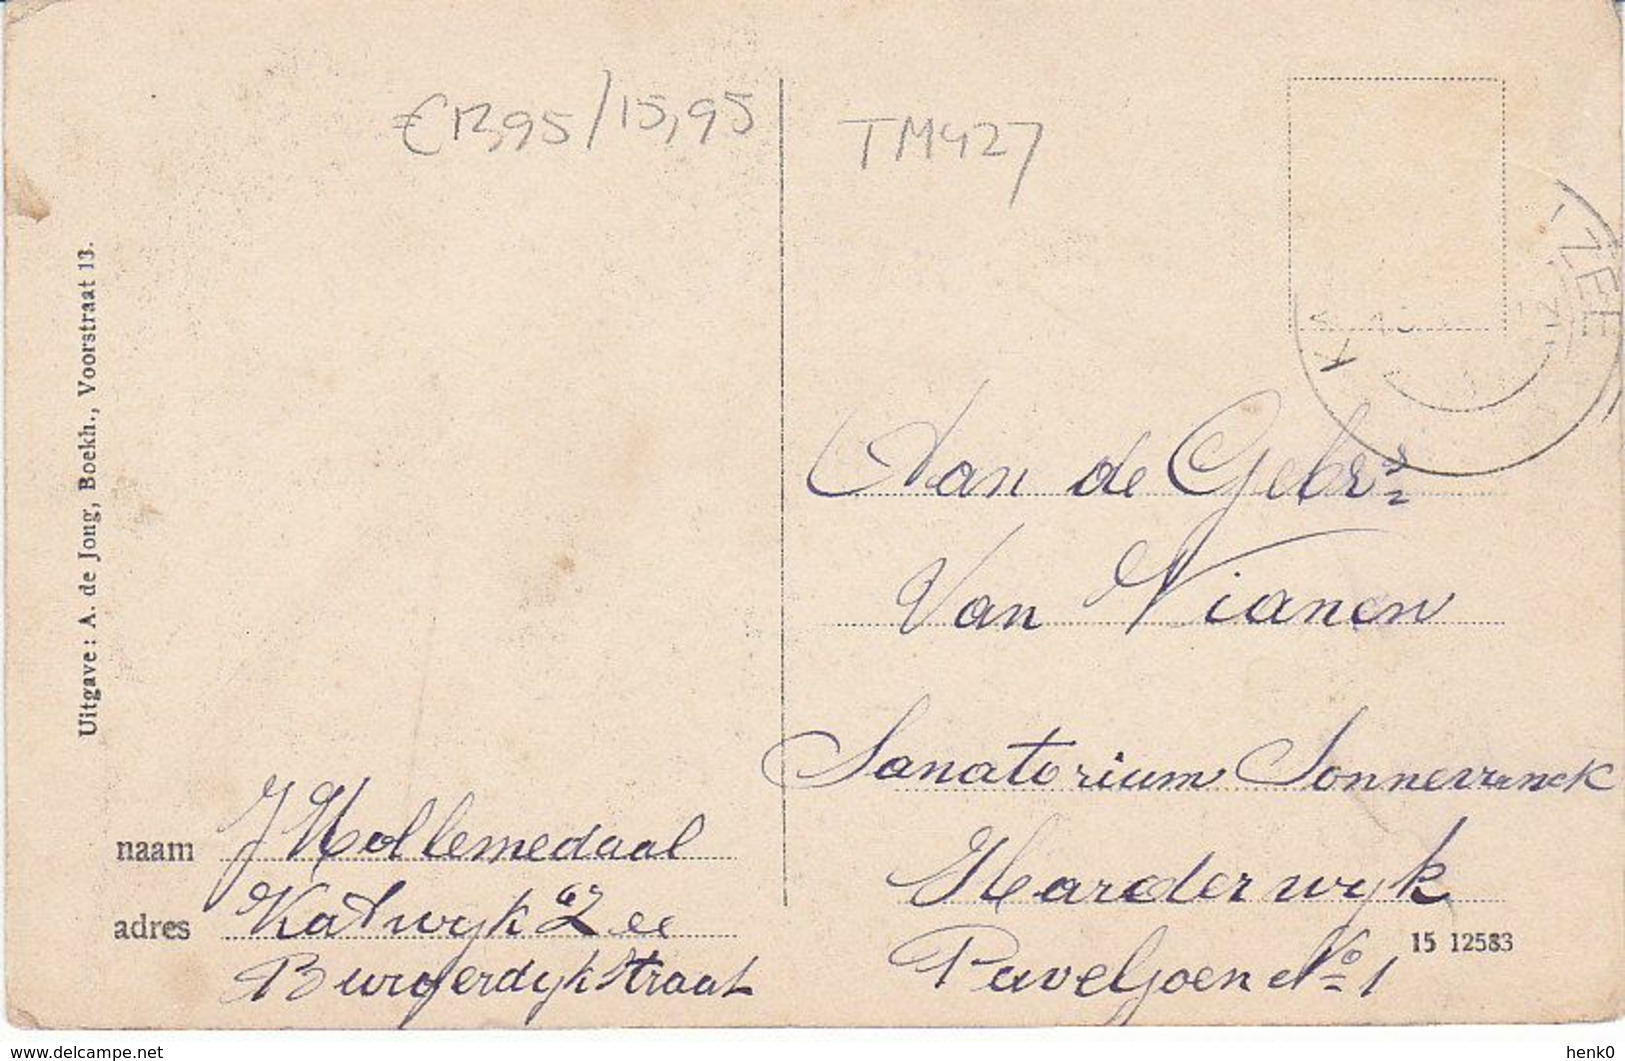 € 13,95/15,95
TM427
Uitgave: A. de Jong, Boekh., Voorstraat 13.
-ZEE
K
Aan de Gebrs
Van Vianen
Sanatorium Sonnevanck
Harderwyk
Paveljoen No 1
15 12583
naam J Hollemedaal
adres Katwyk a/ Zee
Burgerdykstraat
www.delcampe.net
henk0